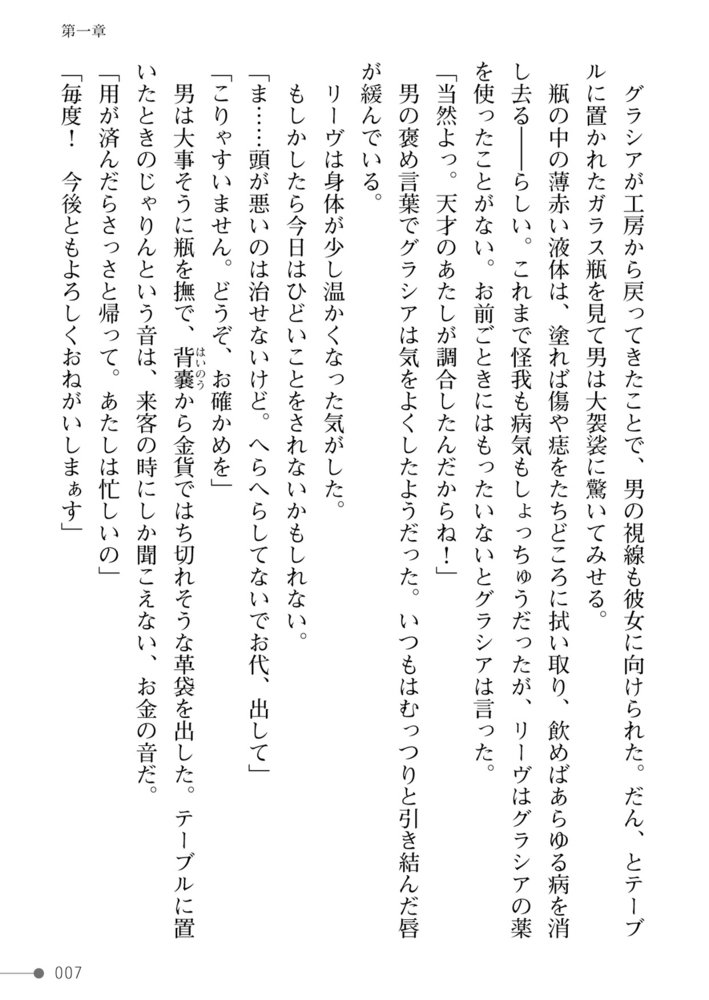 第一章
グラシアが工房から戻ってきたことで、男の視線も彼女に向けられた。だん、とテーブ
ルに置かれたガラス瓶を見て男は大袈裟に驚いてみせる。
瓶の中の薄赤い液体は、塗れば傷や痣をたちどころに拭い取り、飲めばあらゆる病を消
し去る――らしい。これまで怪我も病気もしょっちゅうだったが、リーヴはグラシアの薬
を使ったことがない。お前ごときにはもったいないとグラシアは言った。
「当然よっ。天才のあたしが調合したんだからね！」
男の褒め言葉でグラシアは気をよくしたようだった。いつもはむっつりと引き結んだ唇
が緩んでいる。
リーヴは身体が少し温かくなった気がした。
もしかしたら今日はひどいことをされないかもしれない。
「ま……頭が悪いのは治せないけど。へらへらしてないでお代、出して」
「こりゃすいません。どうぞ、お確かめを」
男は大事そうに瓶を撫で、背嚢はいのうから金貨ではち切れそうな革袋を出した。テーブルに置
いたときのじゃりんという音は、来客の時にしか聞こえない、お金の音だ。
「用が済んだらさっさと帰って。あたしは忙しいの」
「毎度！　今後ともよろしくおねがいしまぁす」
007